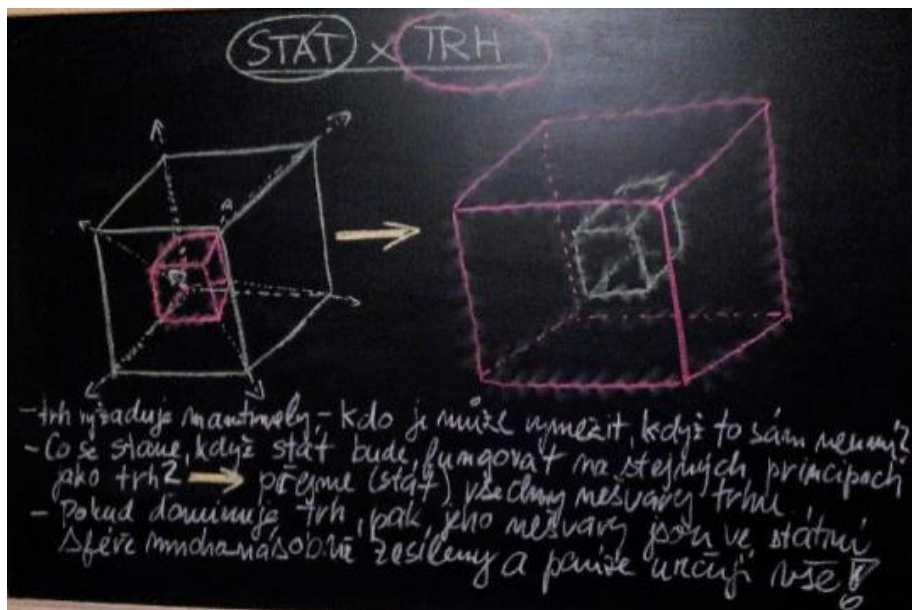 STÁT x TRH
- trh vyžaduje mantinely, - kdo je může vymezit, když to sám neumí?
- Co se stane, když stát bude fungovat na stejných principech
jako trh? → přejme (stát) všechny nešvary trhu
- Pokud dominuje trh, pak jeho nešvary jsou ve státní
sféře mnohanásobně zesíleny a peníze určují vše!